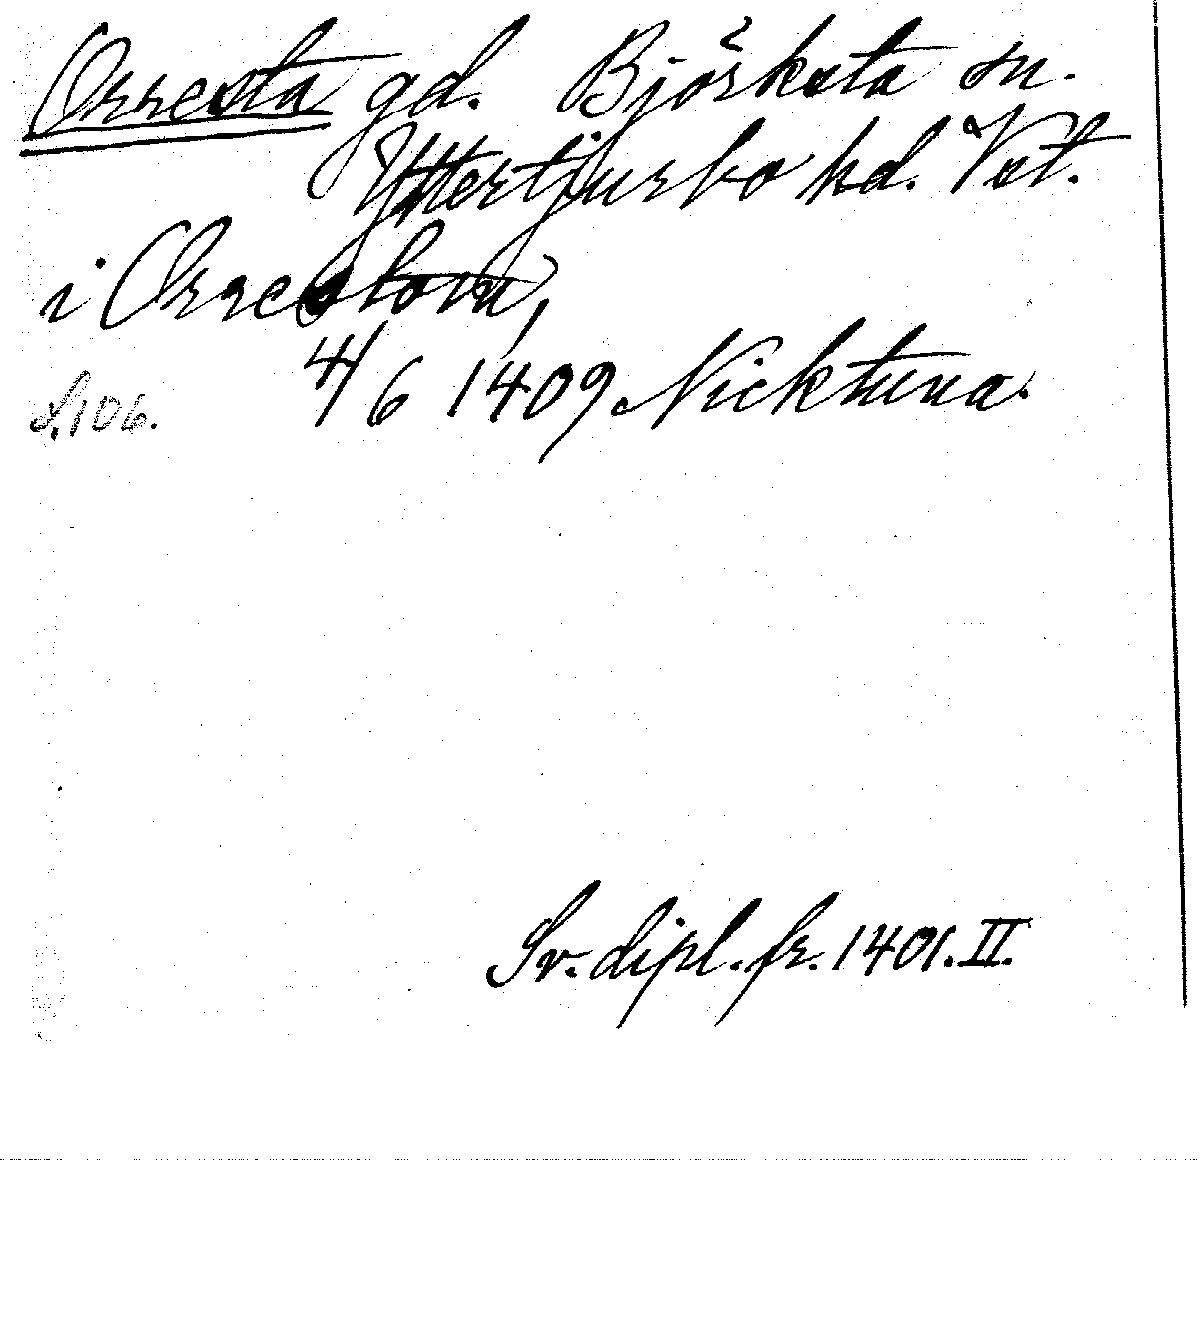 Orresta gd. Björksta sn.
Yttertjurbo hd. Vst.
i Orrestom,
4/6 1409. Nicktuna.
S. 106.
Sv. dipl. fr. 1401. II.